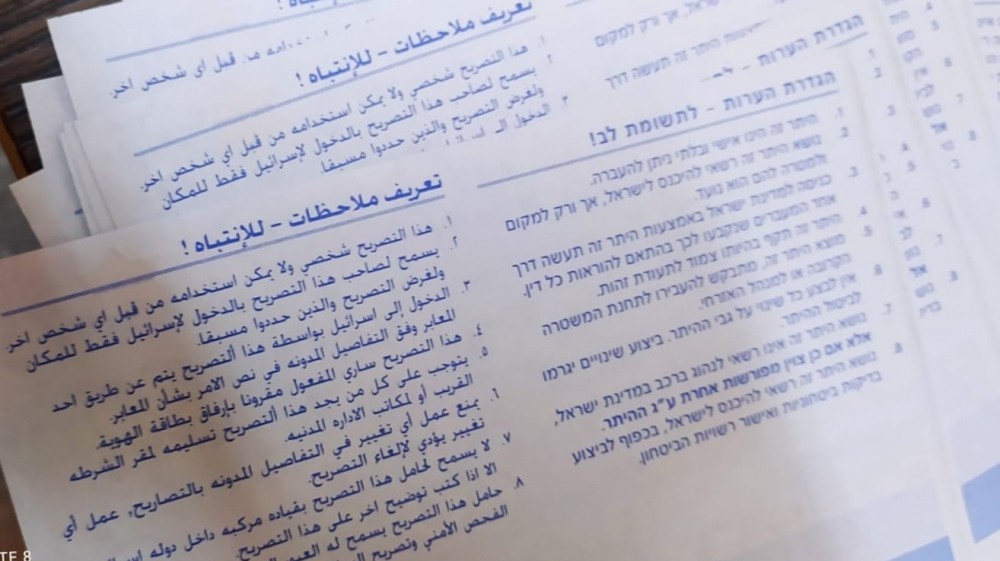 تعريف ملاحظات - للإنتباه !
استخدامه من قبل اي شخص اخر.
تعريف ملاحظات - للإنتباه !
١. هذا التصريح شخصي ولا يمكن استخدامه من قبل اي شخص اخر.
٢. يسمح لصاحب هذا التصريح بالدخول لإسرائيل فقط للمكان
ولغرض التصريح والذين حددوا مسبقا.
٣. الدخول الى
הגדרת הערות -
ישראל, אך ורק למקום
היתר זה תעשה דרך
تعريف ملاحظات - للإنتباه !
١. هذا التصريح شخصي ولا يمكن استخدامه من قبل اي شخص اخر.
٢. يسمح لصاحب هذا التصريح بالدخول لإسرائيل فقط للمكان
ولغرض التصريح والذين حددوا مسبقا.
٣. الدخول إلى اسرائيل بواسطة هذا ألتصريح يتم عن طريق احد
المعابر وفق التفاصيل المدونه في نص الامر بشأن المعابر.
٤. هذا التصريح ساري المفعول مقرونا بإرفاق بطاقة الهوية.
٥. يتوجب على كل من يجد هذا ألتصريح تسليمه لمقر الشرطه
القريب أو لمكاتب الاداره المدنيه.
٦. يمنع عمل أي تغيير في التفاصيل المدونه بالتصاريح, عمل أي
تغيير يؤدي لإلغاء التصريح.
٧. لا يسمح لحامل هذا التصريح بقياده مركبه داخل دوله
الا اذا كتب توضيح اخر على هذا التصريح.
٨. حامل هذا التصريح يسمح له
الفحص الأمني وتصريح
הגדרת הערות - לתשומת לב!
1. היתר זה הינו אישי ובלתי ניתן להעברה.
2. נושא היתר זה רשאי להיכנס לישראל, אך ורק למקום
ולמטרה להם הוא נועד.
3. כניסה למדינת ישראל באמצעות היתר זה תעשה דרך
אחד המעברים שנקבעו לכך בהתאם להוראות כל דין.
4. היתר זה תקף בהיותו צמוד לתעודת זהות.
5. מוצא היתר זה, מתבקש להעבירו לתחנת המשטרה
הקרובה או למנהל האזרחי.
6. אין לבצע כל שינוי על גבי ההיתר. ביצוע שינויים יגרמו
לביטול ההיתר.
7. נושא היתר זה אינו רשאי לנהוג ברכב במדינת ישראל,
אלא אם כן צויין מפורשות אחרת ע"ג ההיתר.
8. נושא היתר זה רשאי להיכנס לישראל, בכפוף לביצוע
בדיקות ביטחוניות ואישור רשויות הביטחון.